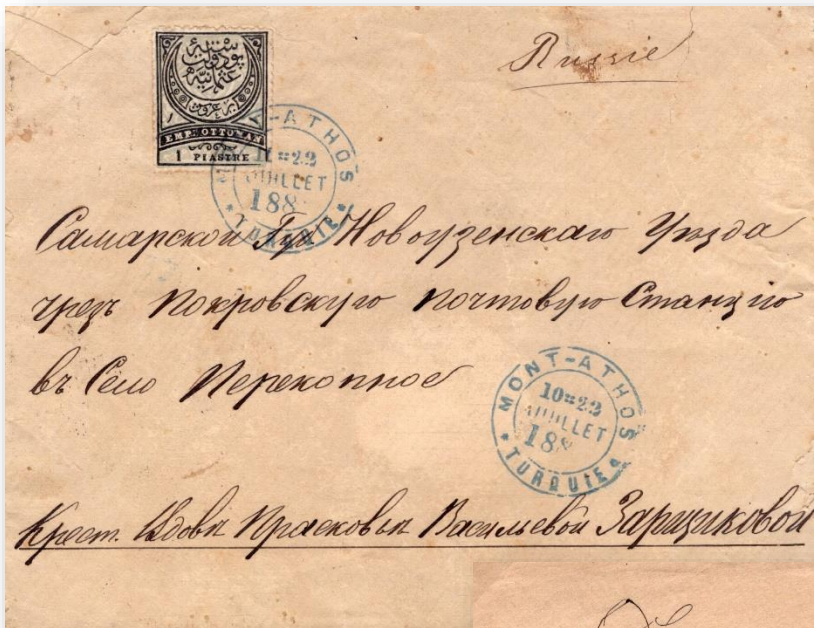 Russie
EMP: OTTOMAN
1 PIASTRE
MONT-ATHOS
22
JUILLET
188
TURQUIE
Самарской Губ Новоузенскаго Уѣзда
чрезъ Покровскую почтовую Станцію
въ Село Перекопное
MONT-ATHOS
10=22
JUILLET
188
TURQUIE
Крест. Вдовѣ Прасковьѣ Васильевой Зарщиковой